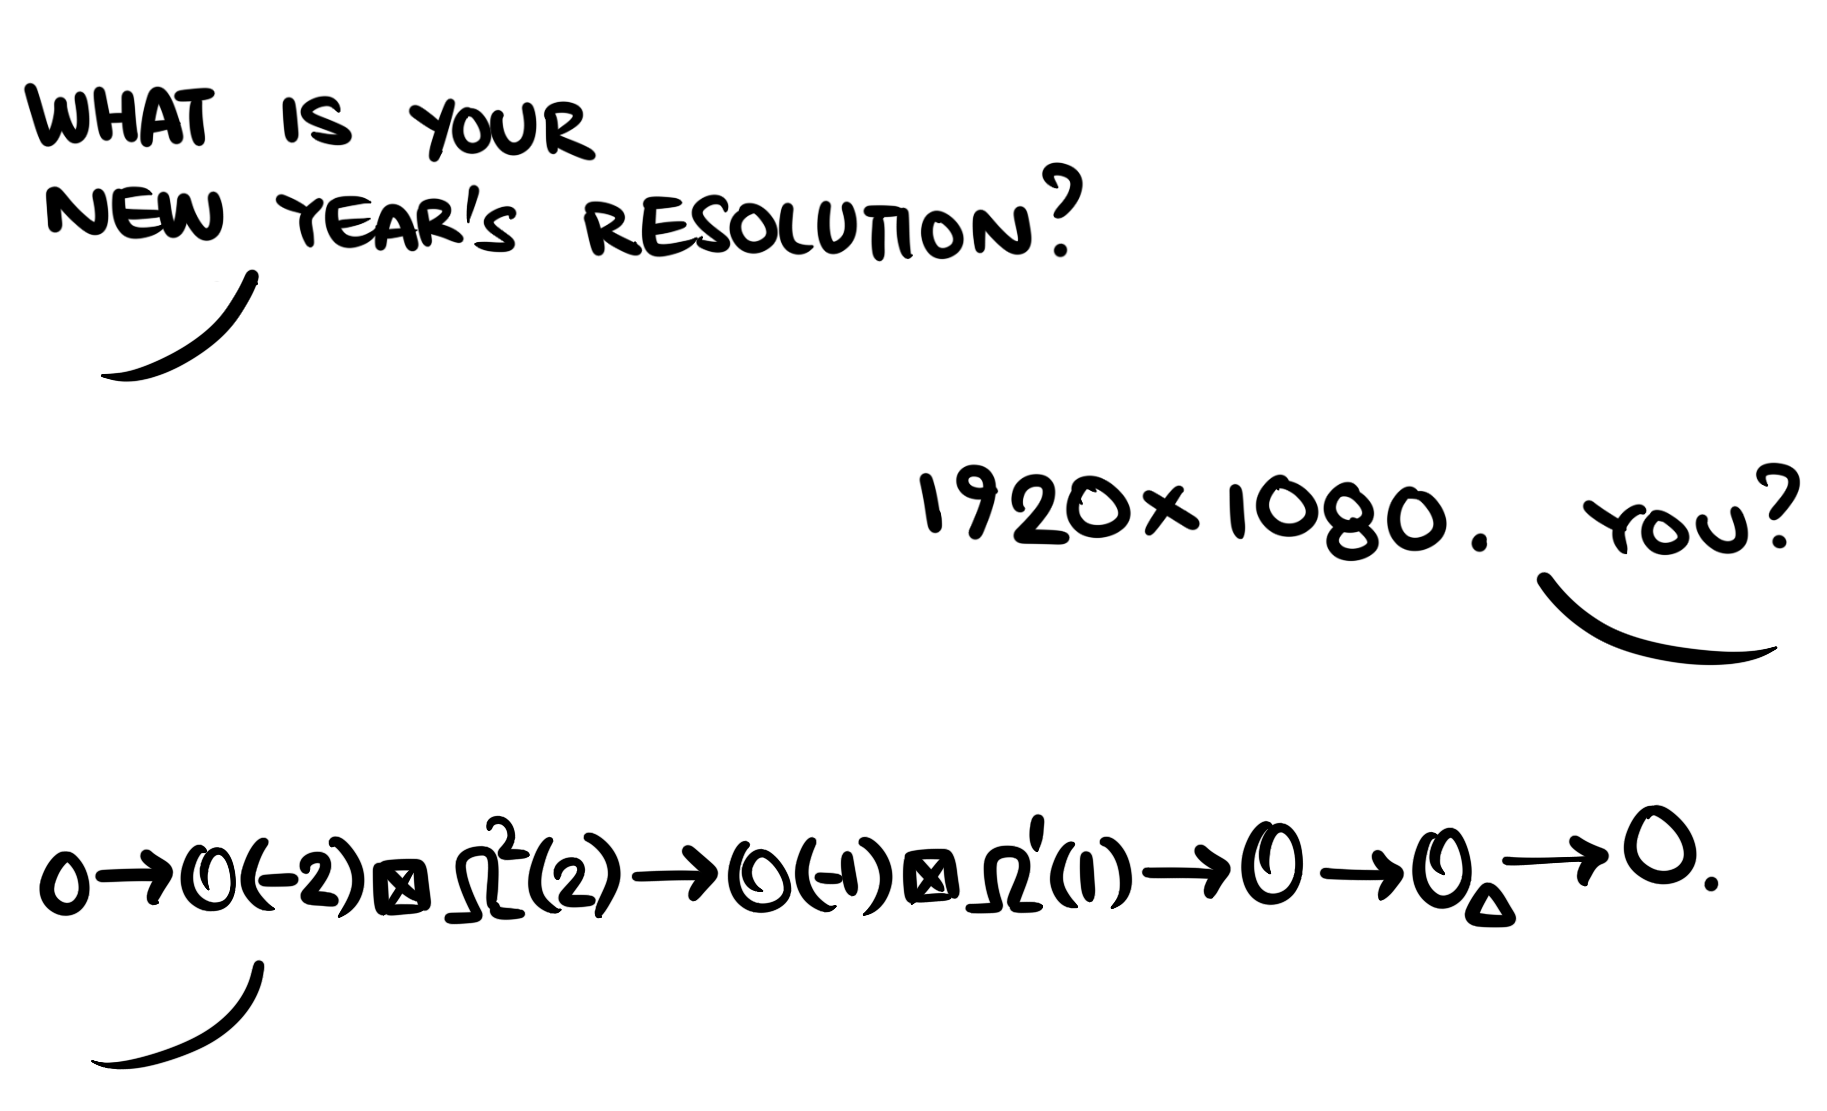 WHAT IS YOUR
NEW YEAR'S RESOLUTION?
1920×1080. YOU?
0→𝒪(-2)⊠Ω²(2)→𝒪(-1)⊠Ω¹(1)→𝒪→𝒪_Δ→0.